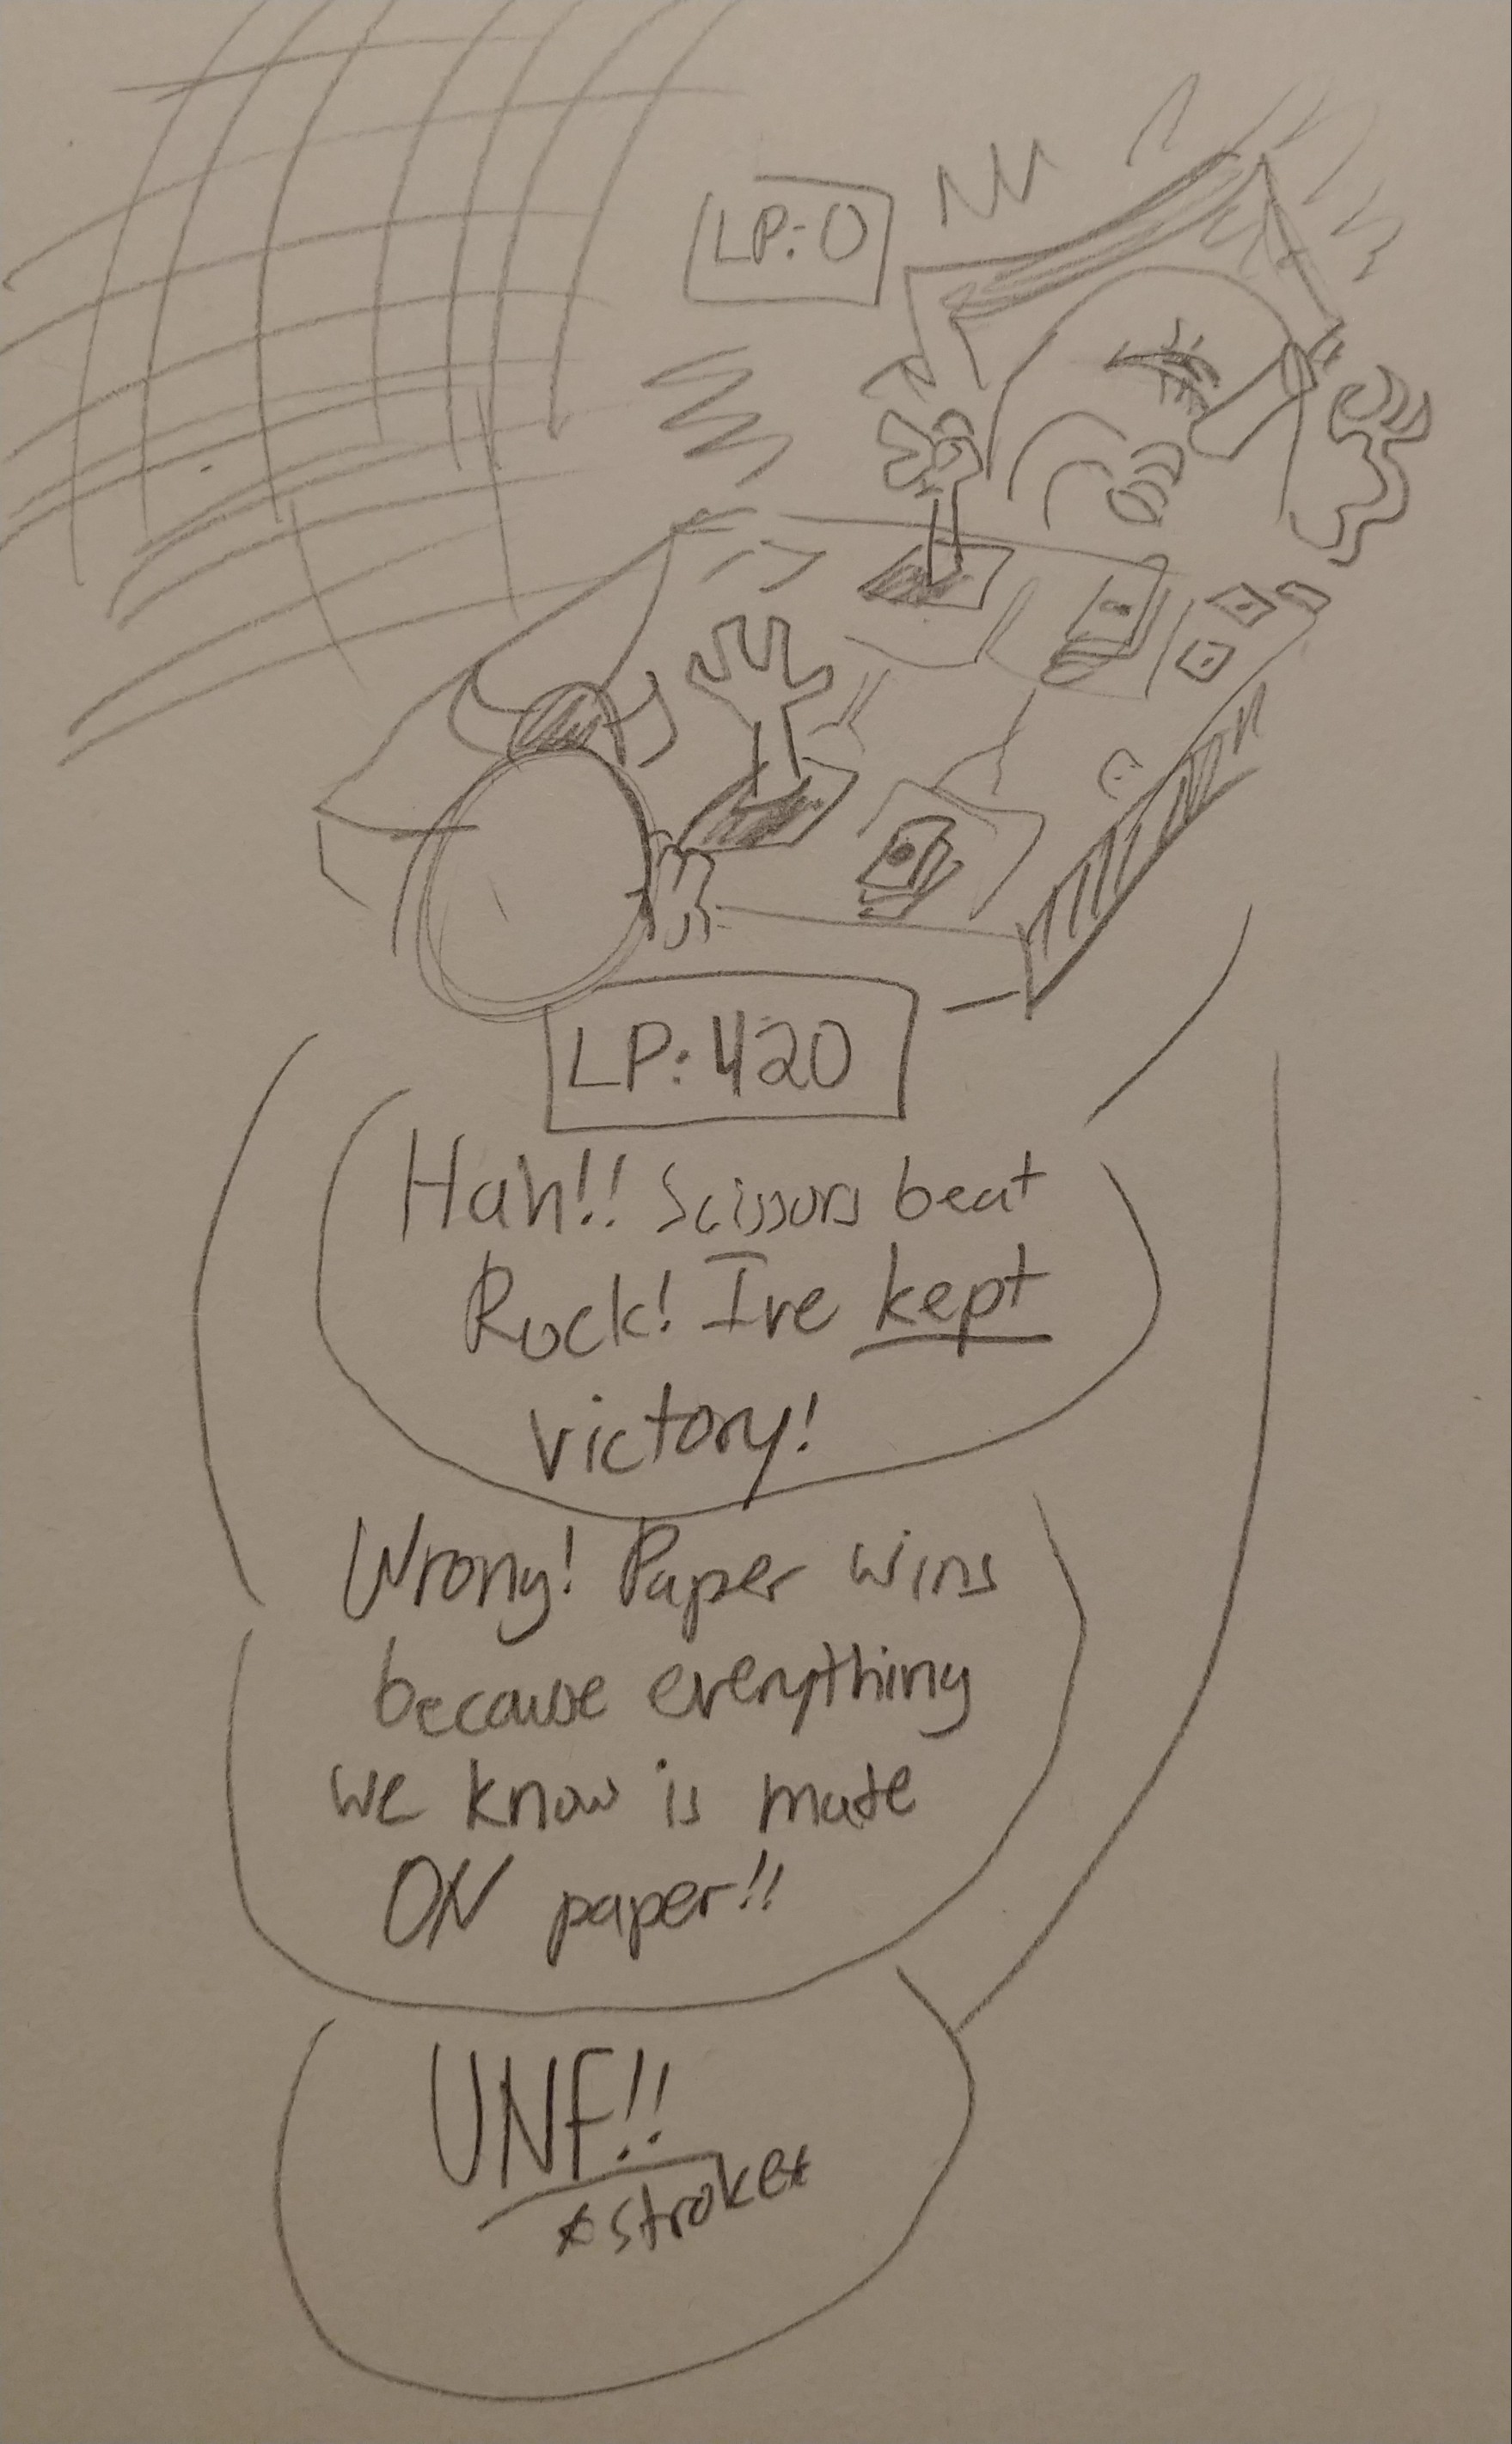 LP: 0
LP: 420
Hah!! Scissors beat
Rock! I've kept
victory!
Wrong! Paper wins
because everything
we know is made
ON paper!!
UNF!!
*stroke*